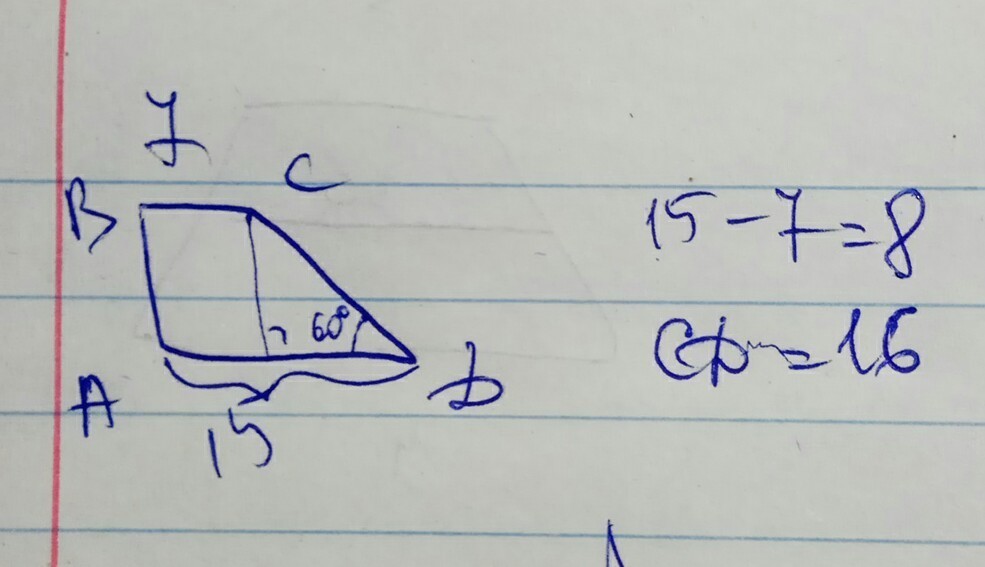 7
B C
60°
A D
15
15-7=8
CD=16